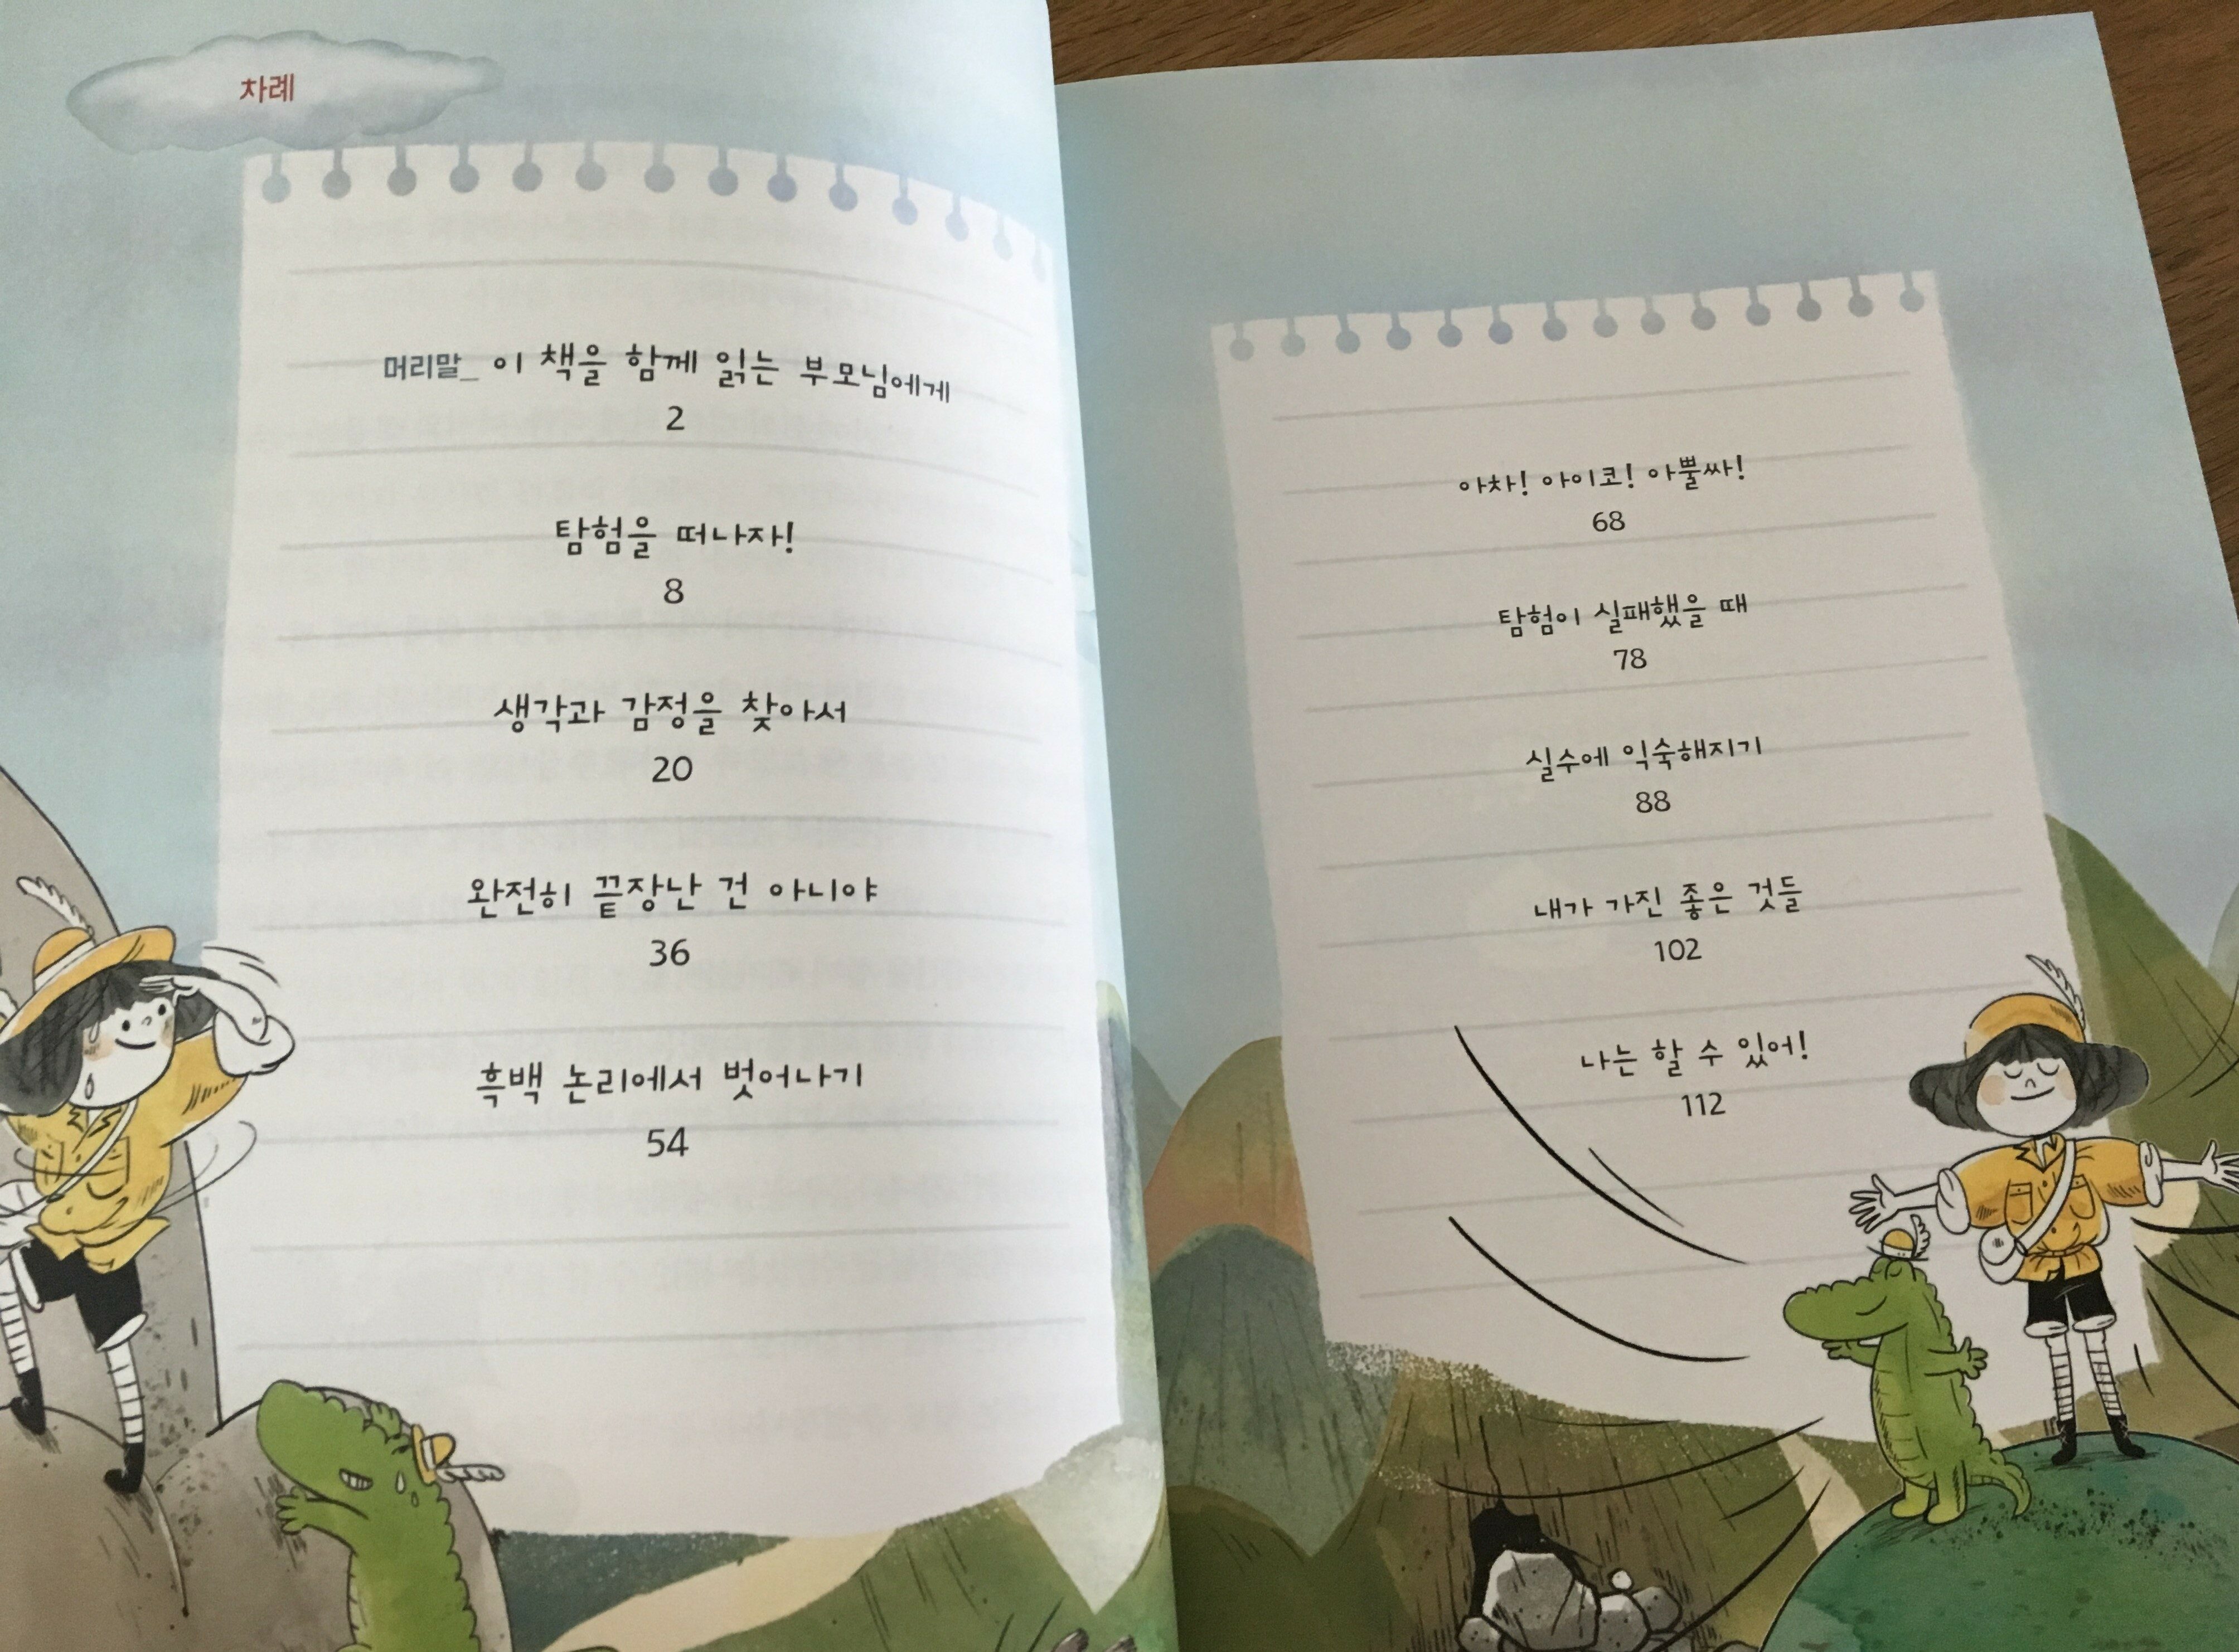 차례
머리말_ 이 책을 함께 읽는 부모님에게
2
탐험을 떠나자!
8
생각과 감정을 찾아서
20
완전히 끝장난 건 아니야
36
흑백 논리에서 벗어나기
54
아차! 아이코! 아뿔싸!
68
탐험이 실패했을 때
78
실수에 익숙해지기
88
내가 가진 좋은 것들
102
나는 할 수 있어!
112